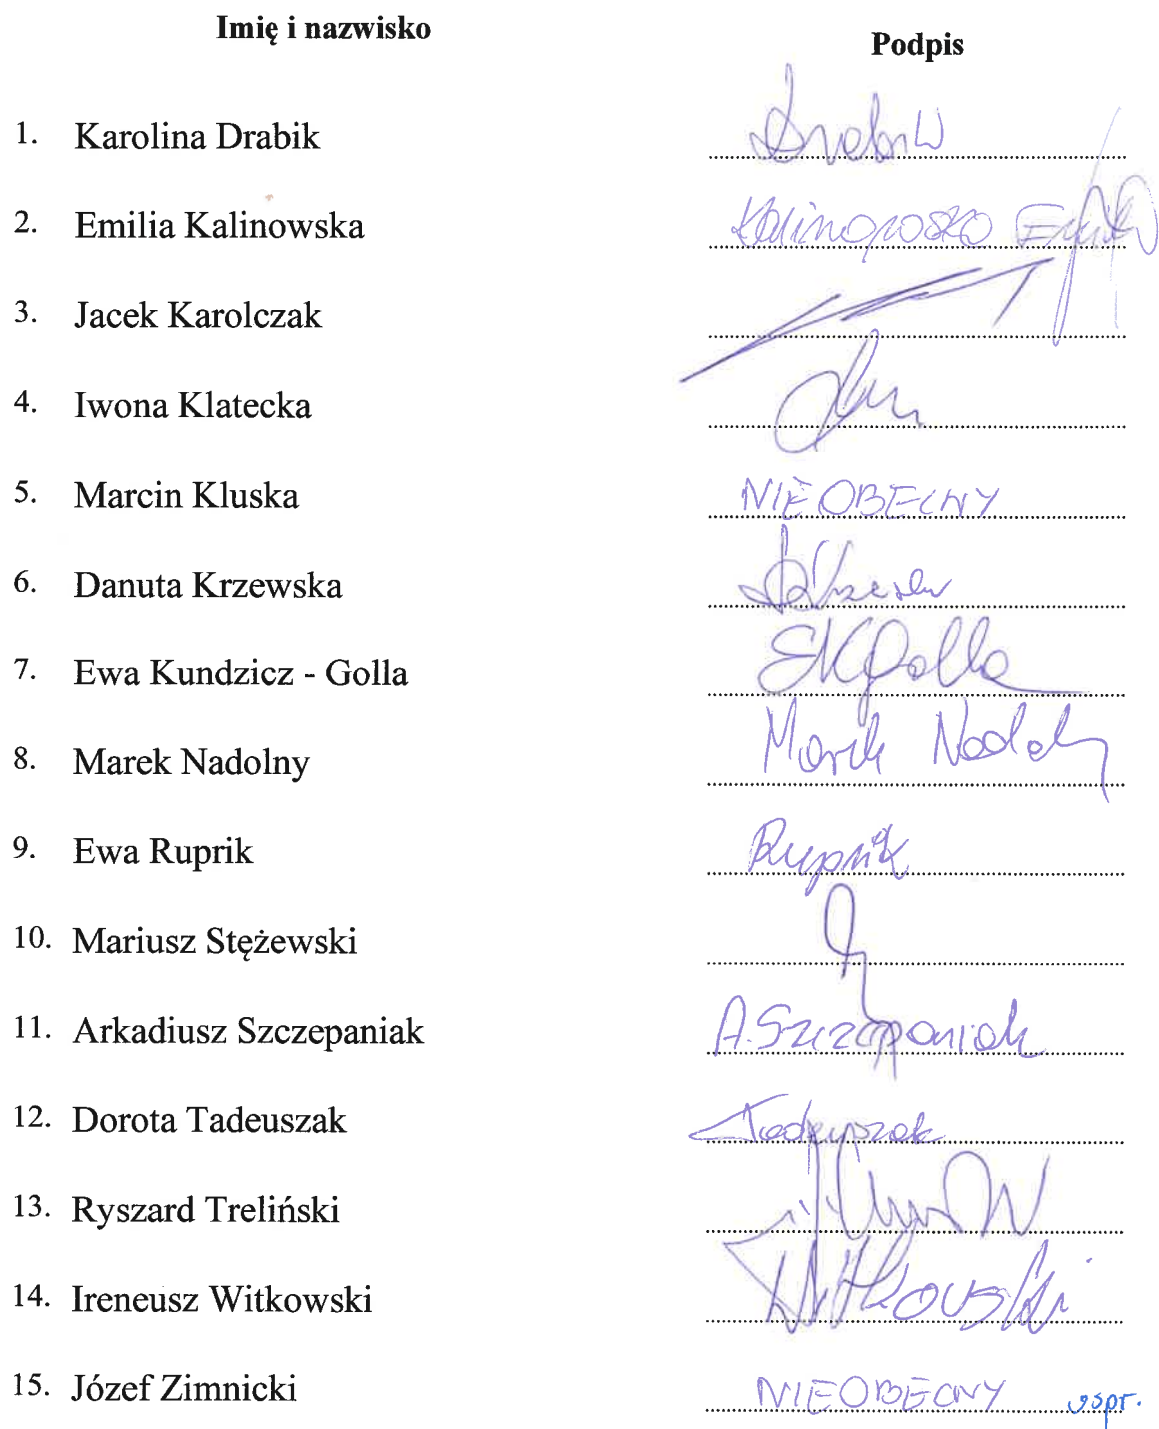 Imię i nazwisko Podpis
1. Karolina Drabik Drabik
2. Emilia Kalinowska Kalinowska Emilia
3. Jacek Karolczak
4. Iwona Klatecka
5. Marcin Kluska NIEOBECNY
6. Danuta Krzewska
7. Ewa Kundzicz - Golla EKGolla
8. Marek Nadolny Marek Nadolny
9. Ewa Ruprik Ruprik
10. Mariusz Stężewski
11. Arkadiusz Szczepaniak A. Szczepaniak
12. Dorota Tadeuszak Tadeuszak
13. Ryszard Treliński
14. Ireneusz Witkowski Witkowski
15. Józef Zimnicki NIEOBECNY uspr.